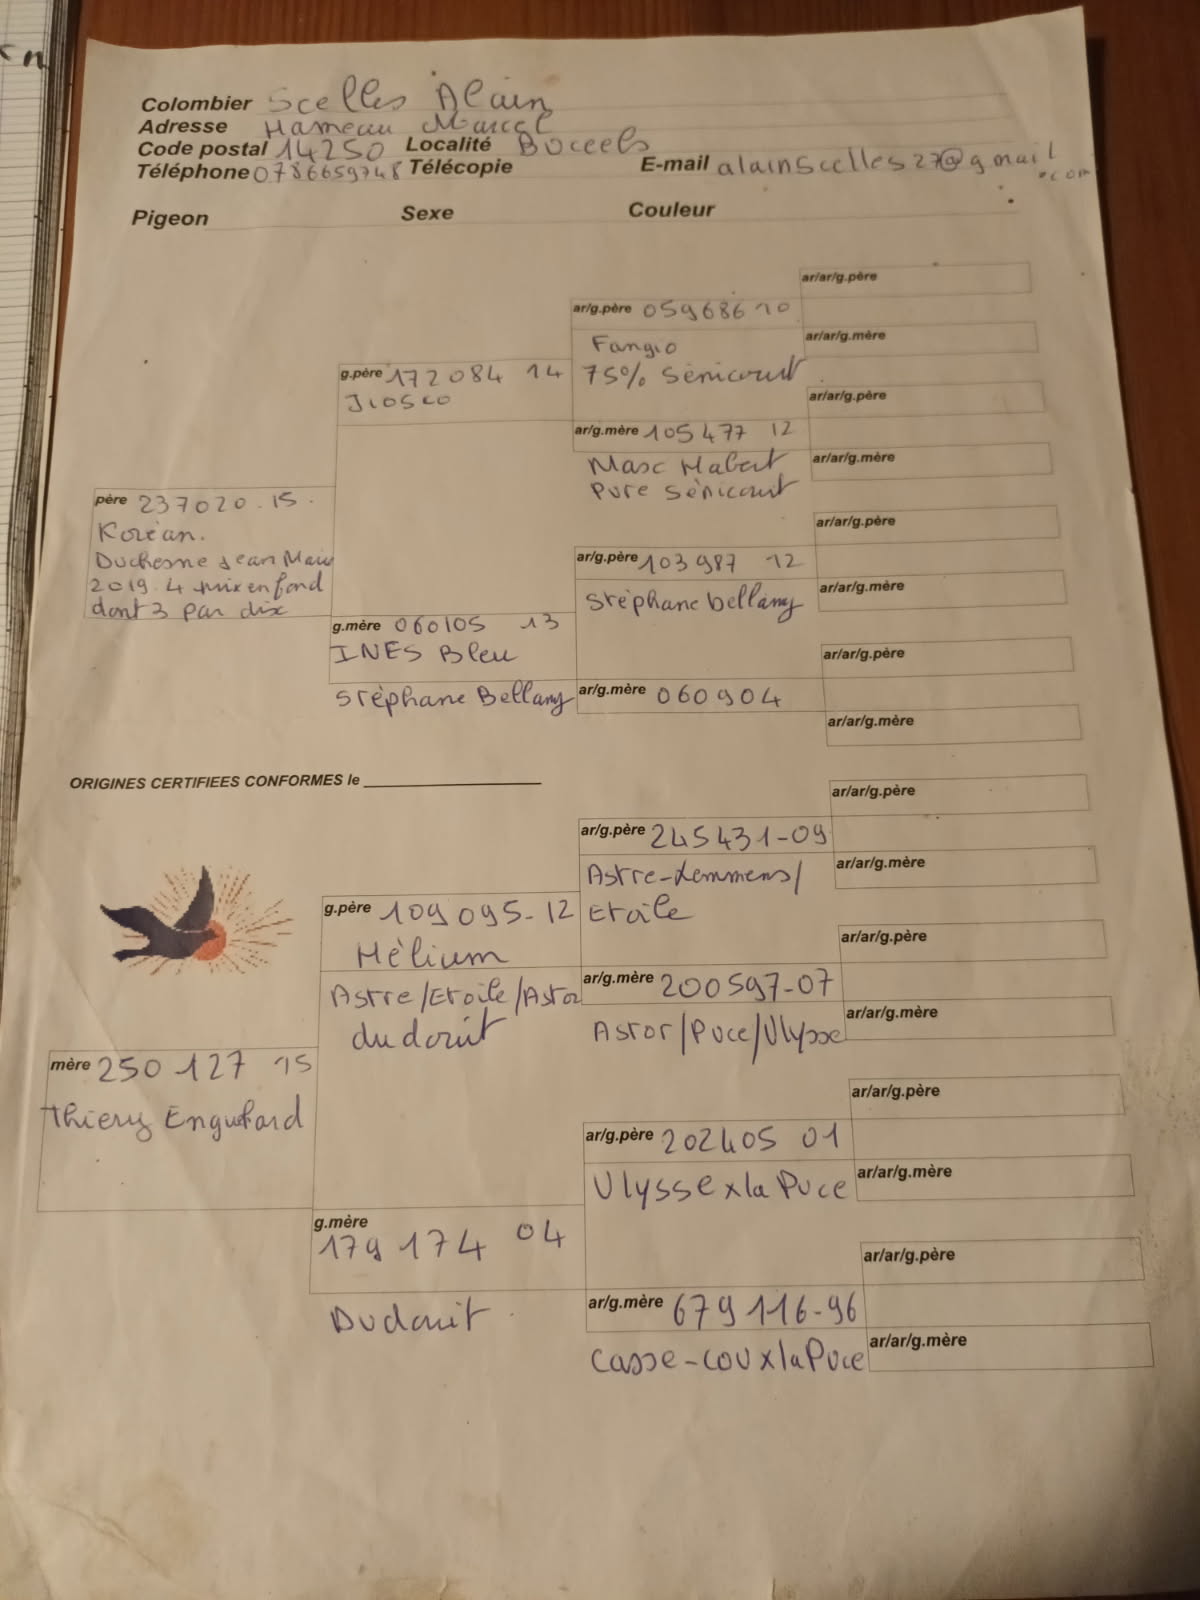 Colombier Scelles Alain
Adresse Hameau Marcel
Code postal 14250 Localité Buceels
Téléphone 0786659748 Télécopie E-mail alainscelles27@gmail.com
Pigeon Sexe Couleur
ar/ar/g.père
ar/g.père 059686 10
ar/ar/g.mère
Fangio
g.père 172084 14
75% Sénicourt
Jiosco
ar/ar/g.père
ar/g.mère 105477 12
ar/ar/g.mère
Marc Habert
Pure Sénicourt
père 237020.15.
ar/ar/g.père
Koréan.
Duchesne Jean Marie
ar/g.père 103987 12
2019. 4 prix en fond
ar/ar/g.mère
dont 3 par dix
Stéphane bellamy
g.mère 060105 13
INES Bleu
ar/ar/g.père
Stéphane Bellamy
ar/g.mère 060904
ar/ar/g.mère
ORIGINES CERTIFIEES CONFORMES le
ar/ar/g.père
ar/g.père 245431-09
ar/ar/g.mère
Astre-Lemmens/
g.père 109095-12
Etoile
Hélium
ar/ar/g.père
ar/g.mère 200597-07
Astre/Etoile/Astor
ar/ar/g.mère
du douit
Astor/Puce/Ulysse
mère 250 127 15
ar/ar/g.père
Thiery
ar/g.père 202405 01
ar/ar/g.mère
Ulysse x la Puce
g.mère
179 174 04
ar/ar/g.père
Dudouit
ar/g.mère 679116-96
ar/ar/g.mère
Casse-cou x la Puce